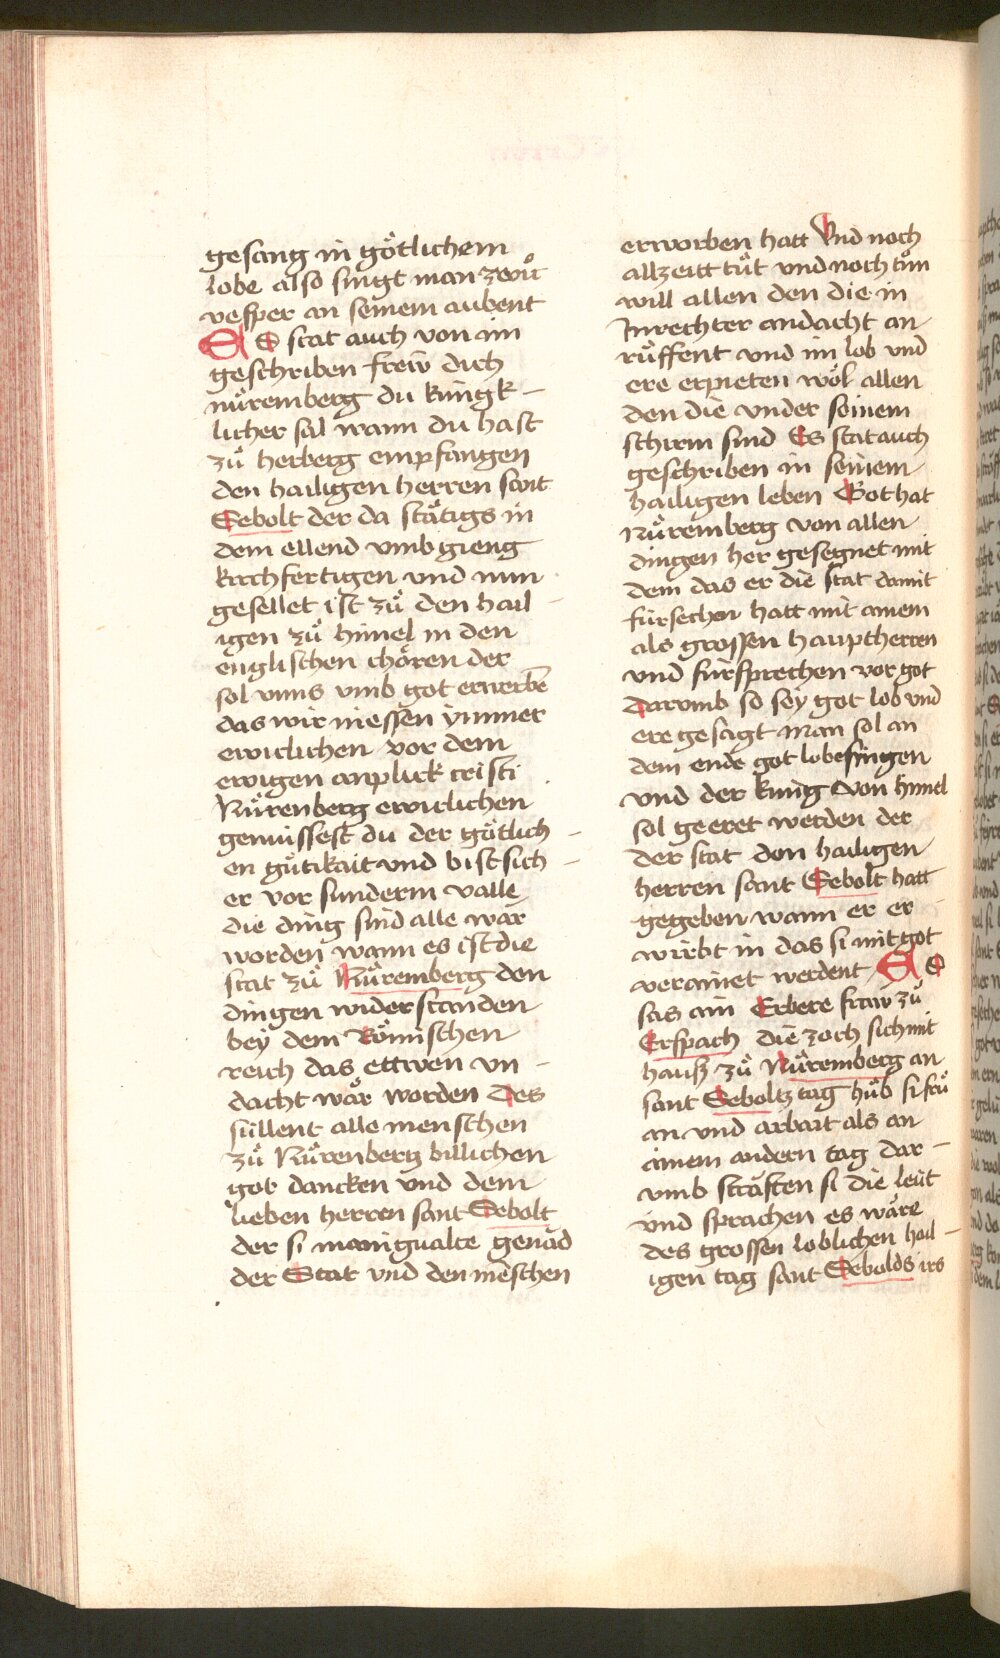 gesang in götlichem
lobe also singt man zwů
vesper an seinem aubent
Es stat auch von im
geschriben frew̎ dich
nu̎remberg du kungk-
licher sal wann du hast
zů herberg empfangen
den hailigen herren sant
Sebolt der da sta̎tigs in
dem ellend vmb gieng
kirchfertigen vnd nun
gesellet ist zů den hail-
igen zů himel in den
englischen chören der
sol vnns vmb got erwerbē
das wir niessen ymmer
ewiclichen vor dem
ewigen anplick cristi
Nu̎renberg ewiclichen
genu̎ssest du der götlich-
en gu̎tikait vnd bist sich-
er vor sunderm valle
die ding sind alle war
worden wann es ist die
stat zů Nu̎remberg den
dingen widerstanden
bey dem Römischen
reich das ettwen vn-
dacht wa̎r worden Des
su̎llent alle menschen
zů Nu̎renberg billichen
got dancken vnd dem
lieben herren sant Sebolt
der si manigualte genad
der Stat vnd den mēschen
erworben hatt Vnd noch
allzeitt tůt vnd noch tůn
will allen den die in
Inrechter andacht an
ru̎ffent vnd im lob vnd
ere erpieten wöl allen
den die vnder seinem
schirm sind Es stat auch
geschriben in seinem
hailigen leben Got hat
Nu̎remberg von allen
dingen her gesegnet mit
dem das er die stat damit
fu̎rsechen hatt mit ainem
als grossen hauptherren
vnd fu̎rsprechen vor got
Darumb so sey got lob vnd
ere gesagt man sol an
dem ende got lobesingen
vnd der kung von himel
sol geeret werden der
der stat den hailigen
herren sant Sebolt hatt
gegeben wann er er-
wirbt in das si mit got
verainet werdent Es
sas ain Erbere fraw zů
Erspach die zoch sich mit
hauß zů Nu̎remberg an
sant Seboltz tag hůb si frů
an vnd arbait als an
ainem andern tag dar-
vmb stra̎ften si die leu̎t
vnd sprachen es wa̎re
des grossen loblichen hail-
igen tag sant Sebolds irs